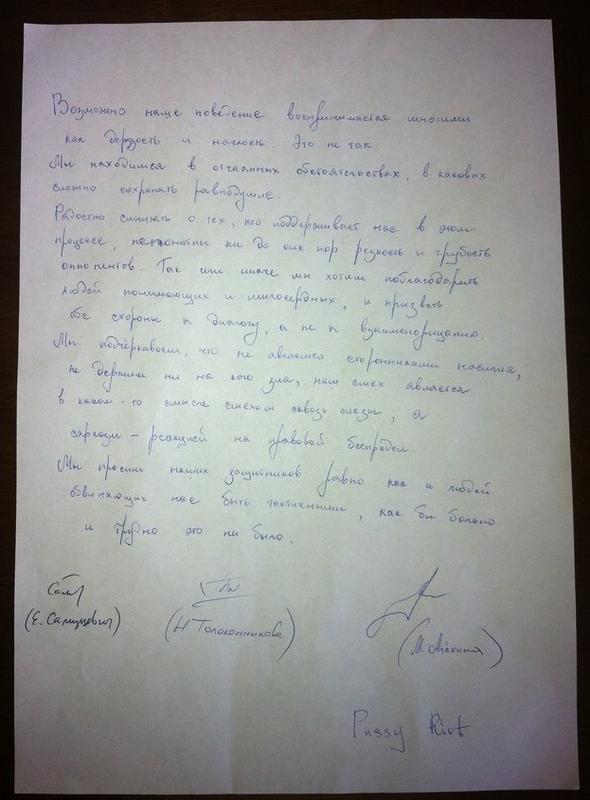 Возможно наше поведение воспринимается многими
как дерзость и наглость. Это не так.
Мы находимся в отчаянных обстоятельствах, в каковых
сложно сохранять равнодушие.
Радостно слышать о тех, кто поддерживает нас в этом
процессе, непонятны ни до сих пор резкость и грубость
оппонентов. Так или иначе мы хотим поблагодарить
людей понимающих и милосердных, и призвать
обе стороны к диалогу, а не к взаимопорицанию.
Мы подчёркиваем, что не являемся сторонниками насилия,
не держим ни на кого зла, наш смех является
в каком-то смысле смехом сквозь слезы, а
сарказм – реакцией на правовой беспредел.
Мы просим наших защитников равно как и людей
обвиняющих нас быть тактичными, как бы больно
и трудно это ни было.
(Е. Самуцевич) (Н Толоконникова) (М. Алёхина)
Pussy Riot